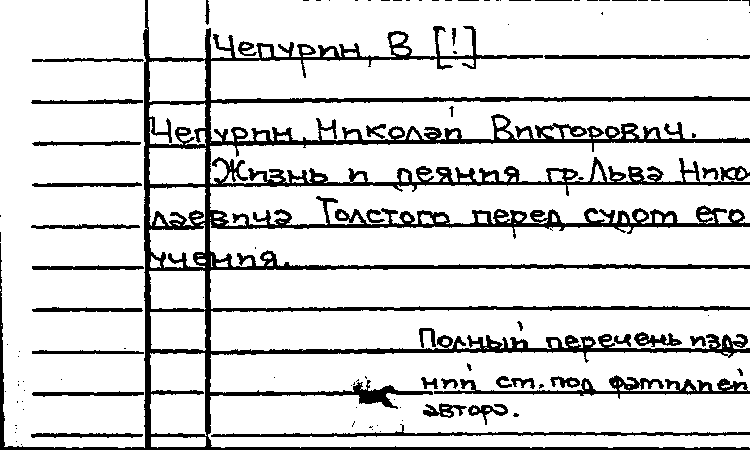 Чепурин, В [!]
Чепурин, Николай Викторович.
Жизнь и деяния гр. Льва Нико
лаевича Толстого перед судом его
учения.
Полный перечень изда
ний см. под фамилией
автора.